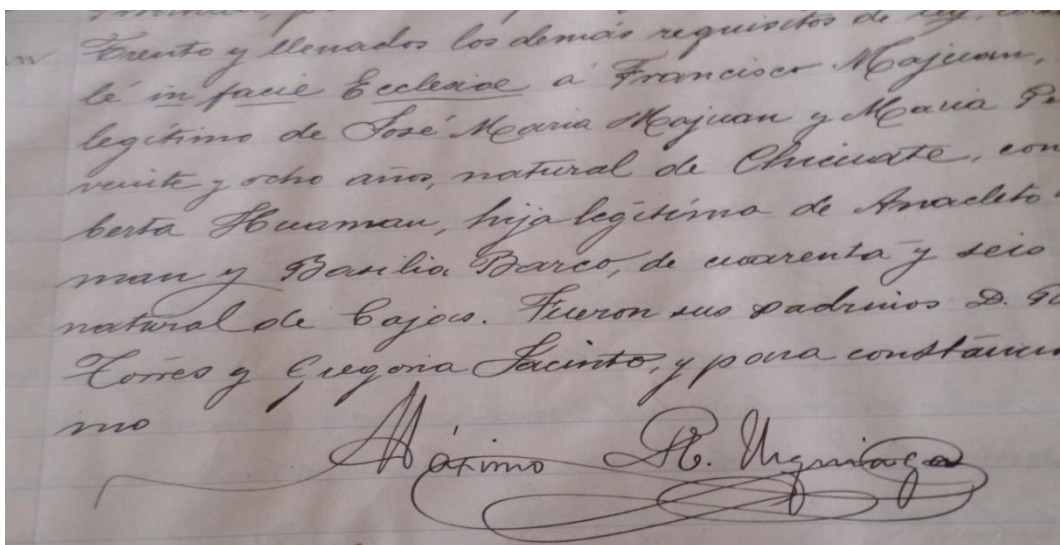 Trento y llenados los demás requisitos de ley,
lé in facie Ecclesiae a Francisco Majuan,
legitimo de José Maria Majuan y Maria
veinte y ocho años, natural de Chicuate, con
berta Huaman, hija legitima de Anacleto
man y Basilia Barco, de cuarenta y seis
natural de Cajas. Fueron sus padrinos D.
Torres y Gregoria Jacinto, y para constancia
mo
Máximo R. Urquiaga